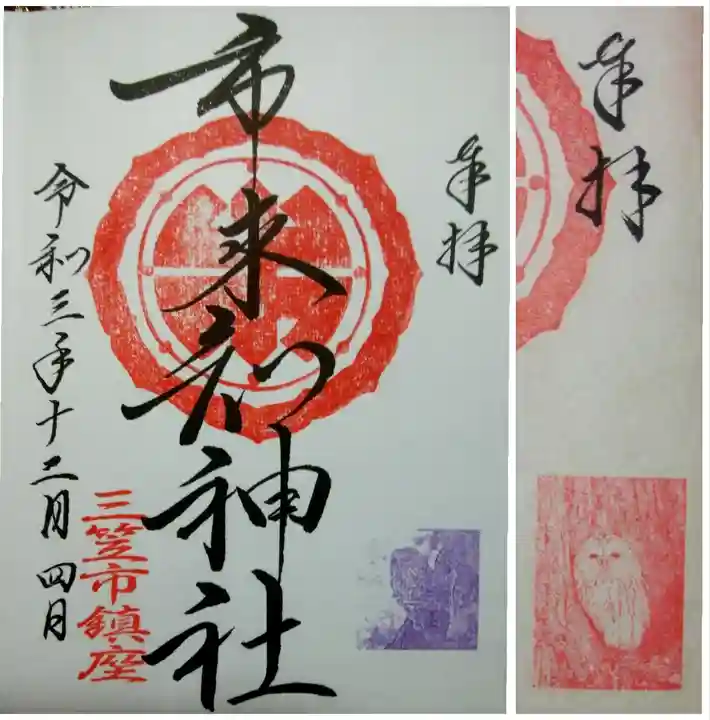 奉拝
市来知神社
三笠市鎮座
令和三年十二月四日
奉拝